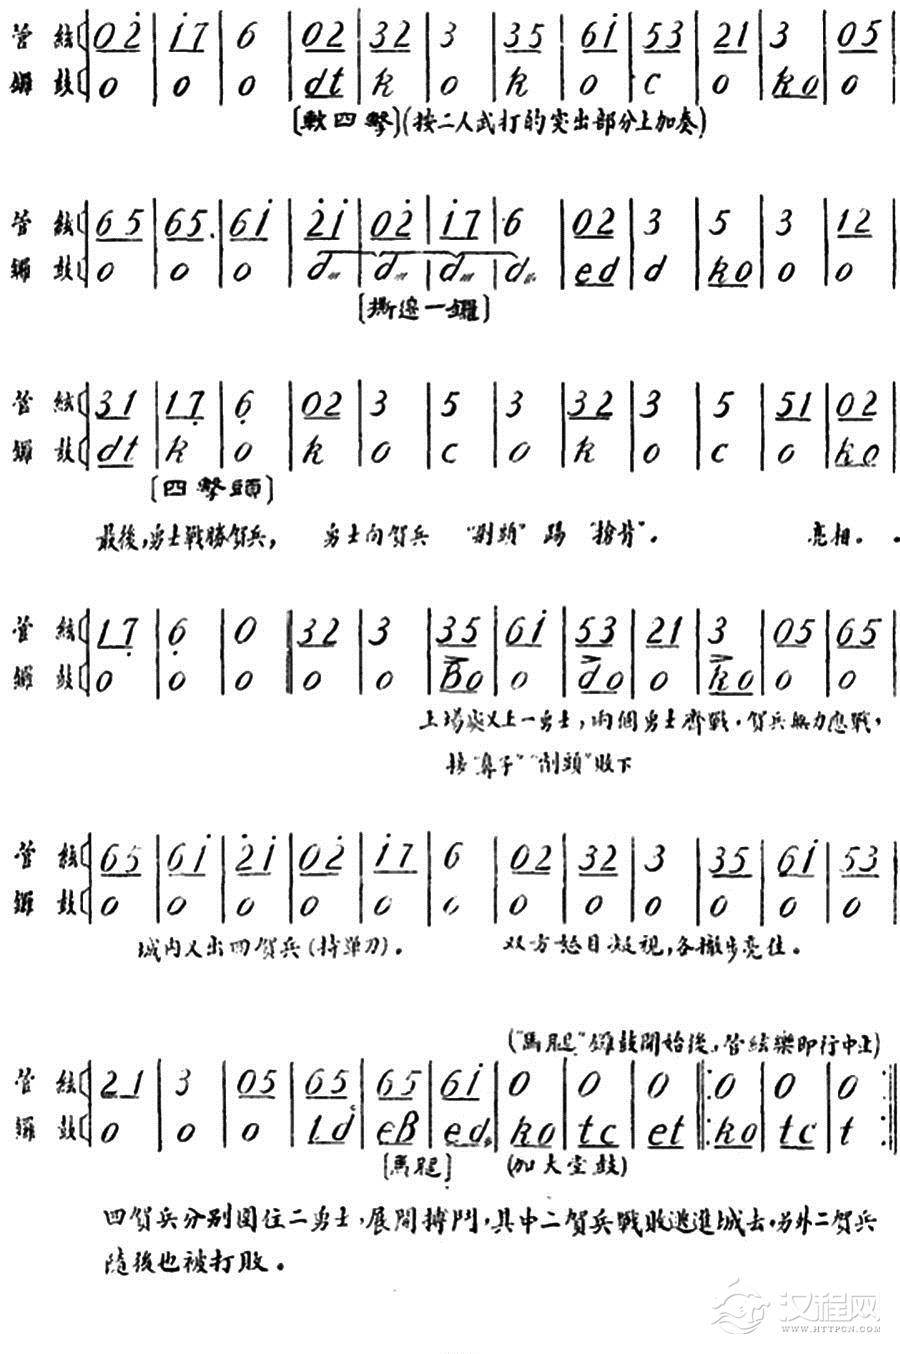 管 絃 0 2̇ | 1̇ 7 | 6 | 0 2 | 3 2 | 3 | 3 5 | 6 1̇ | 5 3 | 2 1 | 3 | 0 5 |
鑼 鼓 0 | 0 | 0 | dt | k | 0 | k | 0 | c | 0 | k0 | 0 |
〔軟四擊〕(按二人武打的突出部分上加奏)
管 絃 6 5 | 6 5. | 6 1̇ | 2̇ 1̇ | 0 2̇ | 1̇ 7 | 6 | 0 2 | 3 | 5 | 3 | 1 2 |
鑼 鼓 0 | 0 | 0 | d〃 | d〃 | d〃 | d〃 | ed | d | k0 | 0 | 0 |
〔撕邊一鑼〕
管 絃 3 1 | 1 7̣ | 6̣ | 0 2 | 3 | 5 | 3 | 3 2 | 3 | 5 | 5 1 | 0 2 |
鑼 鼓 dt | k | 0 | k | 0 | c | 0 | k | 0 | c | 0 | k0 |
〔四擊頭〕
最後,勇士戰勝賀兵, 勇士向賀兵 "削頭" 踢 "搶背"。 亮相。
管 絃 1 7̣ | 6̣ | 0 ‖ 3 2 | 3 | 3 5 | 6 1̇ | 5 3 | 2 1 | 3 | 0 5 | 6 5 |
鑼 鼓 0 | 0 | 0 ‖ 0 | 0 | B0 | 0 | d0 | 0 | k0 | 0 | 0 |
上場處又上一勇士,兩個勇士齊戰。賀兵無力應戰,
接"鼻子""削頭"敗下
管 絃 6 5 | 6 1̇ | 2̇ 1̇ | 0 2̇ | 1̇ 7 | 6 | 0 2 | 3 2 | 3 | 3 5 | 6 1̇ | 5 3 |
鑼 鼓 0 | 0 | 0 | 0 | 0 | 0 | 0 | 0 | 0 | 0 | 0 | 0 |
城內又出四賀兵(持單刀)。 双方怒目凝視,各撤步亮住。
("馬腿"鑼鼓開始後,管絃樂即行中止)
管 絃 2 1 | 3 | 0 5 | 6 5 | 6 5 | 6 1̇ | 0 | 0 | 0 ‖: 0 | 0 | 0 :‖
鑼 鼓 0 | 0 | 0 | Ld | eB | ed. | k0 | tc | et ‖: k0 | tc | t :‖
〔馬腿〕 (加大堂鼓)
四賀兵分别圍住二勇士,展開搏鬥,其中二賀兵戰敗逃進城去。另外二賀兵
隨後也被打敗。
汉程网
WWW.HTTPCN.COM